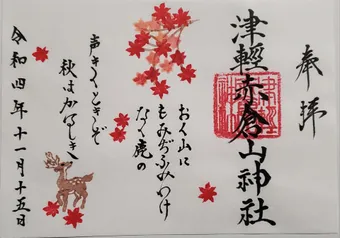 奉拝
津輕赤倉山神社
おく山に
もみぢふみわけ
なく鹿の
声きくときぞ
秋はかなしき
令和四年十一月十五日